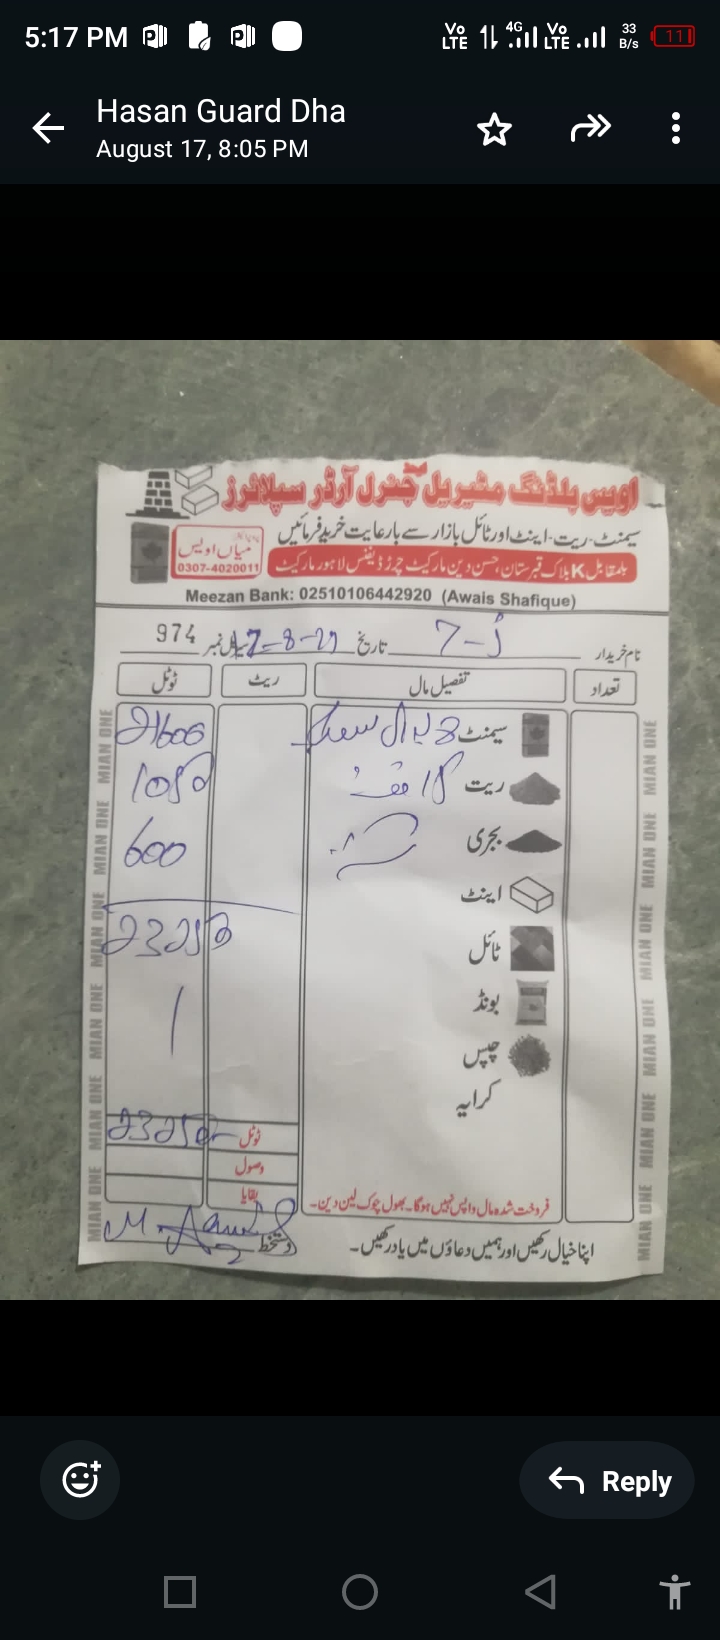 5:17 PM
Vo LTE 4G Vo LTE 33 B/s 11
Hasan Guard Dha
August 17, 8:05 PM
اویس بلڈنگ مٹیریل جنرل آرڈر سپلائرز
سیمنٹ-ریت-اینٹ اور ٹائل بازار سے بارعایت خرید فرمائیں
میاں اویس
0307-4020011
بلمقابل K بلاک قبرستان، حسن دین مارکیٹ چرڑ ڈیفنس لاہور مارکیٹ
Meezan Bank: 02510106442920 (Awais Shafique)
نام خریدار 7- تاریخ 17-8-21 سیریل نمبر 974
تعداد تفصیل مال ریٹ ٹوٹل
سیمنٹ 21600
ریت 1050
بجری 600
اینٹ
ٹائل 23250
بونڈ
چپس
کرایہ
ٹوٹل 23250
وصول
بقایا
فروخت شدہ مال واپس نہیں ہوگا۔ بھول چوک لین دین۔
دستخط
اپنا خیال رکھیں اور ہمیں دعاؤں میں یاد رکھیں۔
MIAN ONE MIAN ONE MIAN ONE MIAN ONE MIAN ONE MIAN ONE
MIAN ONE MIAN ONE MIAN ONE MIAN ONE MIAN ONE MIAN ONE
Reply